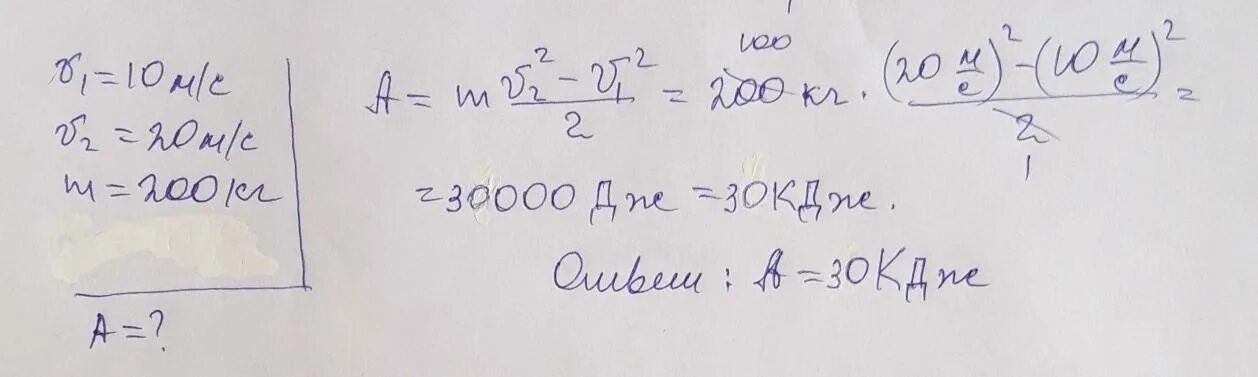 v₁ = 10 м/с
v₂ = 20 м/с
m = 200 кг
A = ?
A = m (v₂² − v₁²)/2 = 200 кг · ((20 м/с)² − (10 м/с)²)/2 =
100
1
= 30000 Дж = 30 КДж.
Ответ : A = 30 КДж